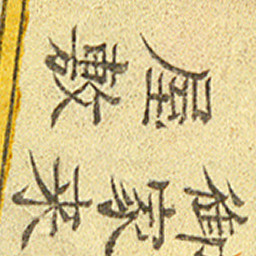 御家来
屋敷